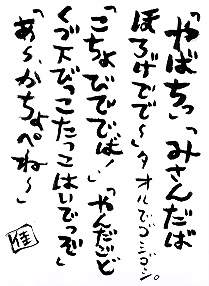 「やばちっ」「みさんだば
ほろげでで〜」タオルでゴシゴシ。
「こちょびでででば!」「やんだごど
くづ下びっこたっこはいでっぞ」
「あ〜、かちょぺね〜」
佳